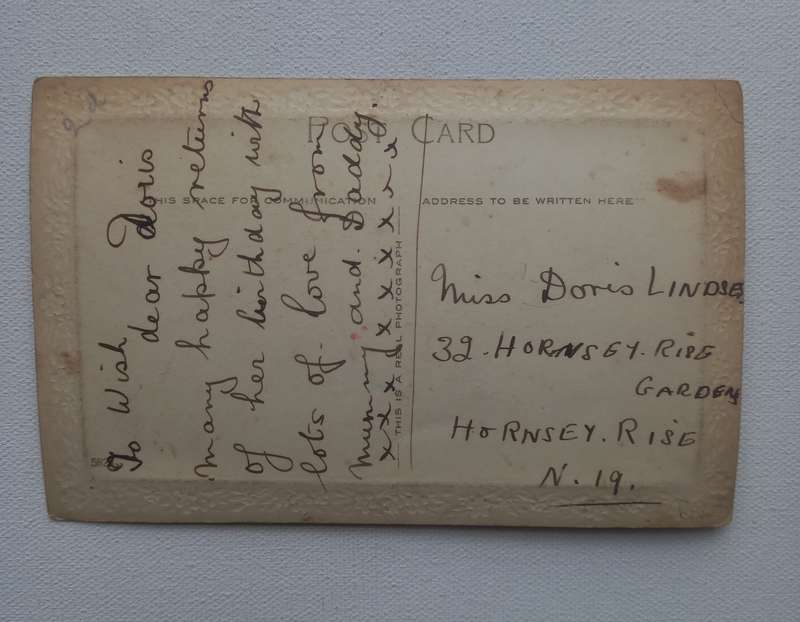 POST CARD
THIS SPACE FOR COMMUNICATION
ADDRESS TO BE WRITTEN HERE
To Wish
dear Doris
many happy returns
of her birthday with
lots of love from
Mummy and Daddy.
x x x x x x x x x x
THIS IS A REAL PHOTOGRAPH
Miss Doris LINDSE
32. HORNSEY. RISE
GARDENS
HORNSEY. RISE
N. 19.
2d